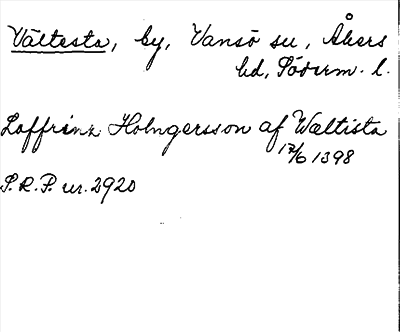 Vältesta, by, Vansö sn, Åkers
hd, Söderm. l.
Laffrinz Holmgersson af Wæltista
17/6 1398
S.R.P. nr. 2920